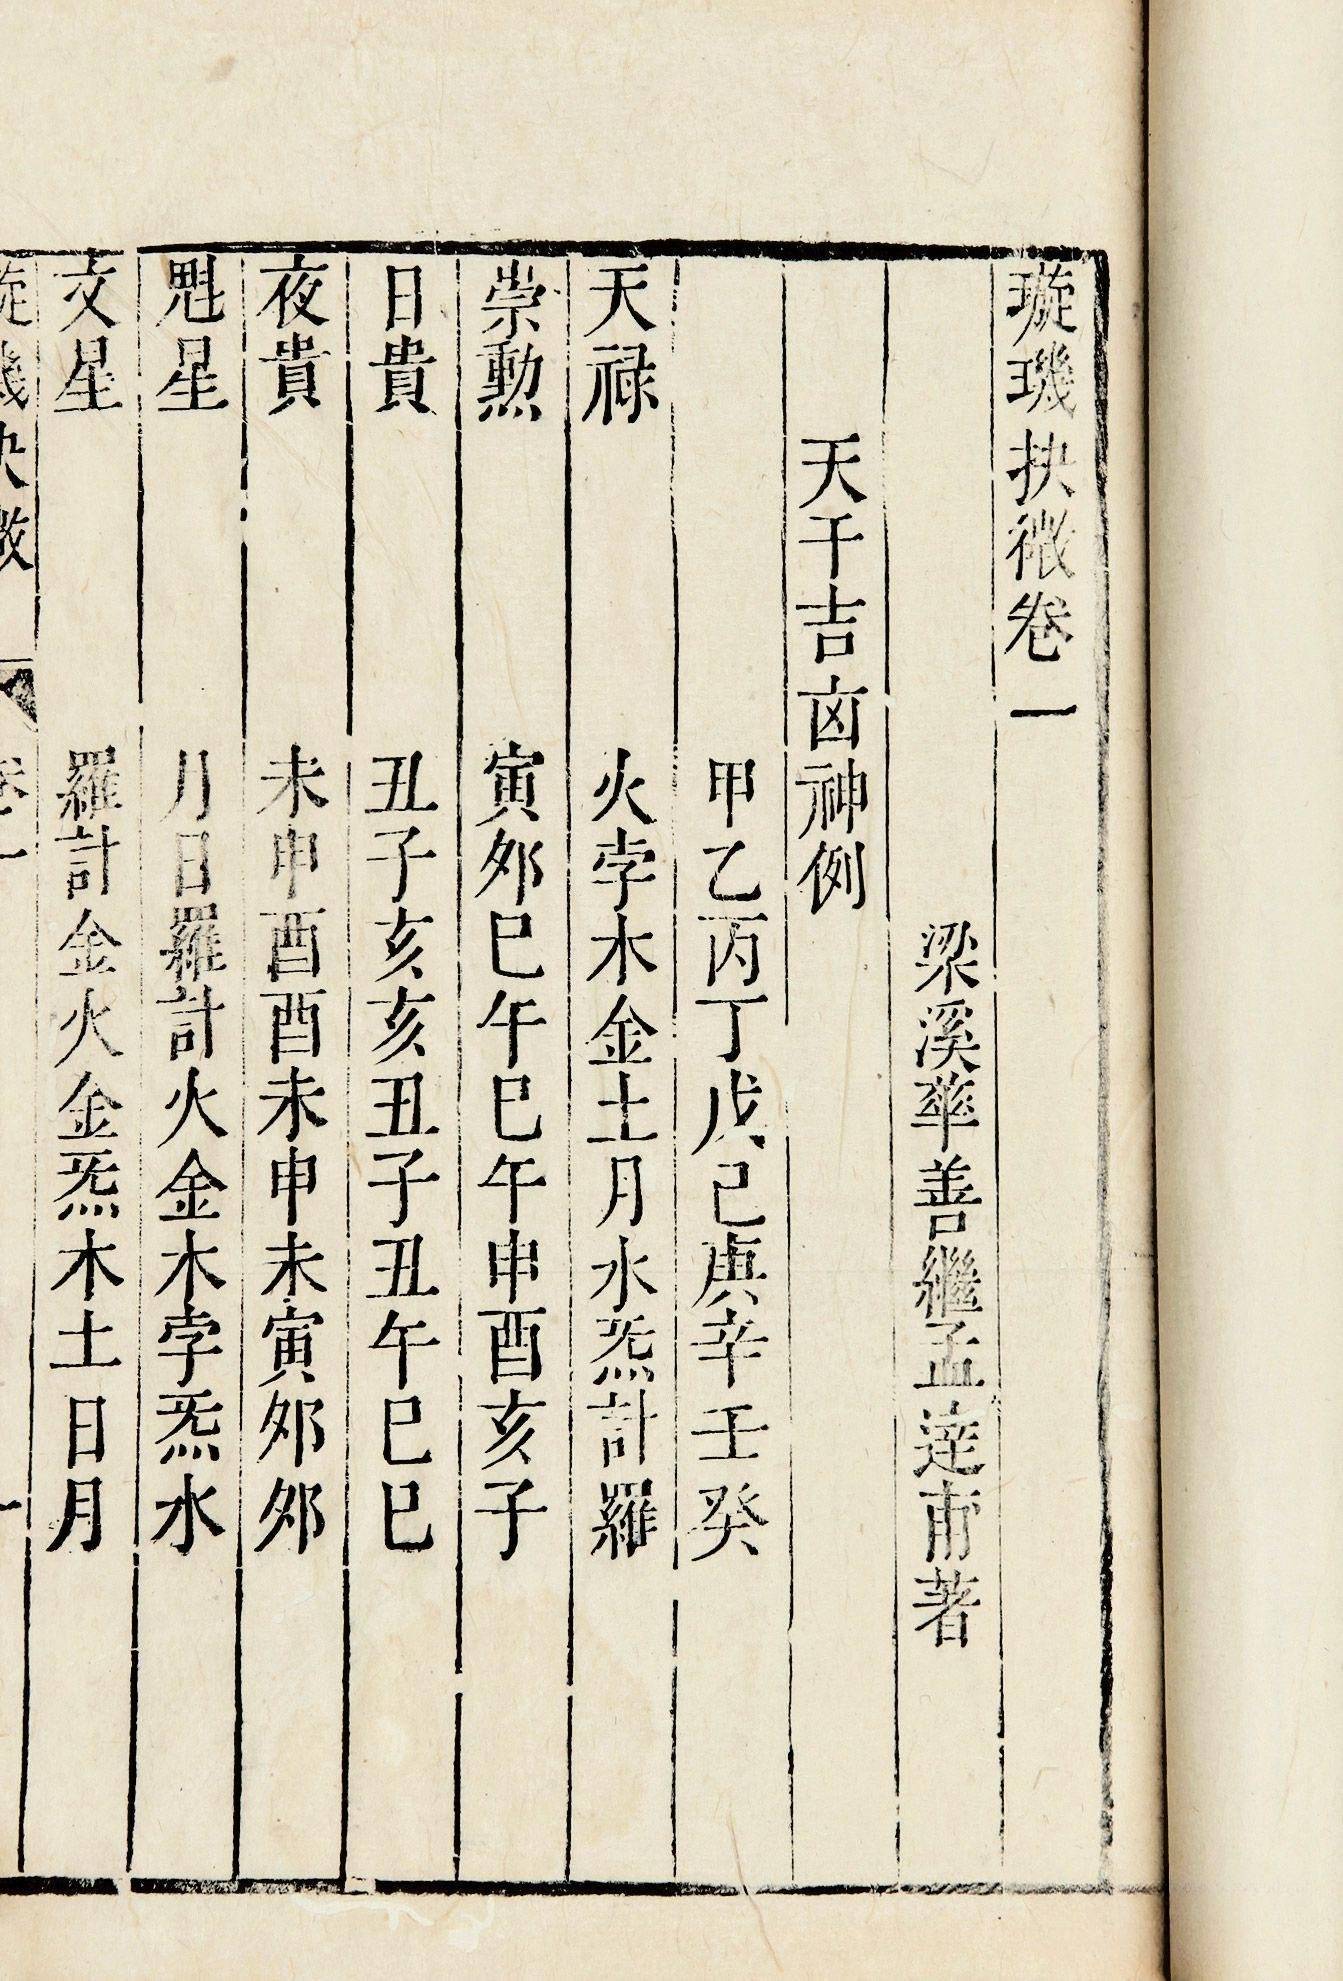 璇璣抉微卷一
梁溪華善繼孟達甫著
天干吉凶神例
甲乙丙丁戊己庚辛壬癸
天祿 火孛木金土月水炁計羅
崇勳 寅夘巳午巳午申酉亥子
日貴 丑子亥亥丑子丑午巳巳
夜貴 未申酉酉未申未寅夘夘
魁星 月日羅計火金木孛炁水
文星 羅計金火金炁木土日月
璇璣抉微 卷一 一